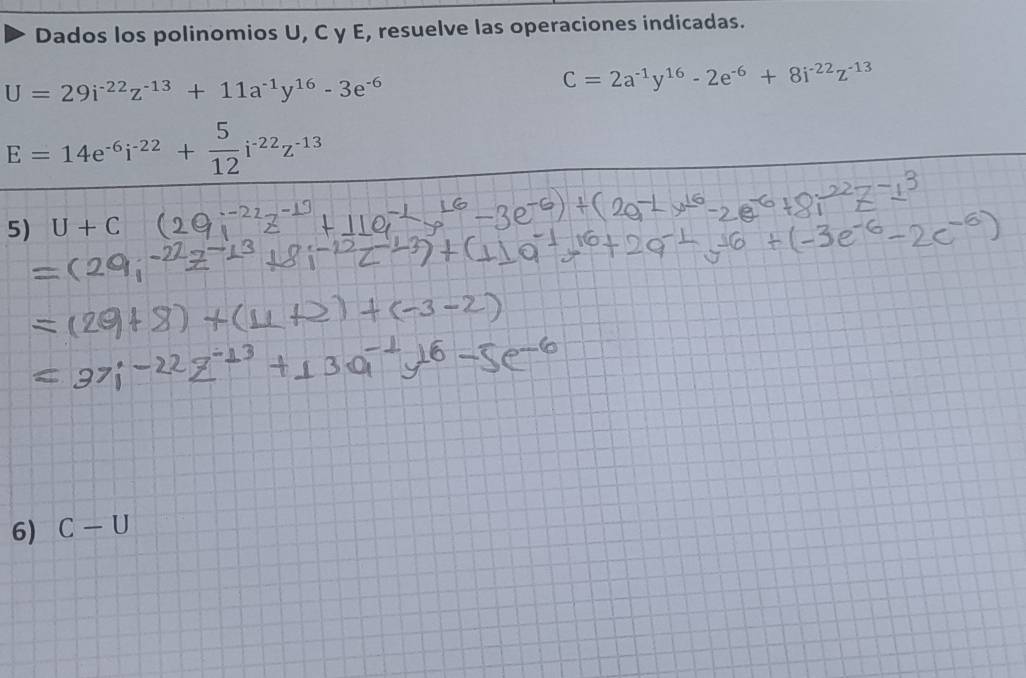 ▶ Dados los polinomios U, C y E, resuelve las operaciones indicadas.
U = 29i⁻²²z⁻¹³ + 11a⁻¹y¹⁶ - 3e⁻⁶
C = 2a⁻¹y¹⁶ - 2e⁻⁶ + 8i⁻²²z⁻¹³
E = 14e⁻⁶i⁻²² + 5/12 i⁻²²z⁻¹³
5) U + C (29i⁻²²z⁻¹³ + 11a⁻¹y¹⁶ - 3e⁻⁶) + (2a⁻¹y¹⁶ - 2e⁻⁶ + 8i⁻²²z⁻¹³
= (29i⁻²²z⁻¹³ + 8i⁻²²z⁻¹³) + (11a⁻¹y¹⁶ + 2a⁻¹y¹⁶ + (-3e⁻⁶ - 2e⁻⁶)
= (29 + 8) + (11 + 2) + (-3 - 2)
= 37i⁻²²z⁻¹³ + 13a⁻¹y¹⁶ - 5e⁻⁶
6) C - U